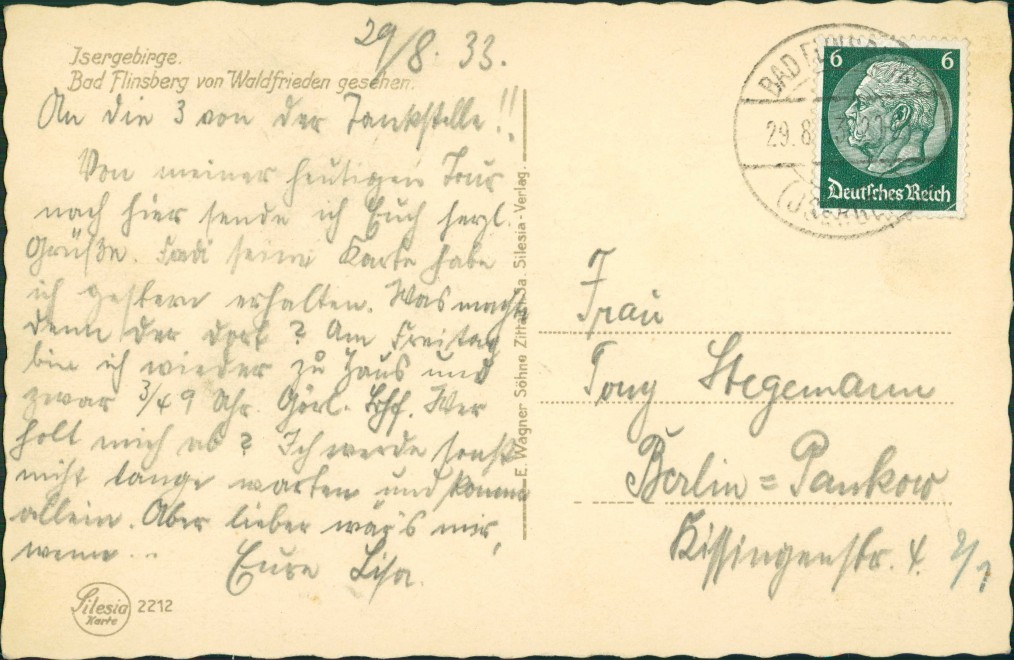 29/8. 33.
Isergebirge.
Bad Flinsberg von Waldfrieden gesehen.
An die 3 von der Tankstelle!!
Von meiner heutigen Tour
nach hier sende ich Euch herzl.
Grüße. Fadi seine Karte habe
ich gestern erhalten. Was macht
denn der dort? Am Freitag
bin ich wieder zu Haus und
zwar 3/4 9 Uhr. Görl. Bhf. Wer
holt mich ab? Ich werde sonst
nicht lange warten und komme
allein. Aber lieber wär's mir,
wenn...
Eure Lisa.
Silesia
Karte
2212
E. Wagner Söhne Zittau Sa. Silesia-Verlag.
BAD
29.8.
(ISERGEB
6 6
Deutsches Reich
Frau
Tony Stegemann
Berlin = Pankow
Kissingenstr. 4.